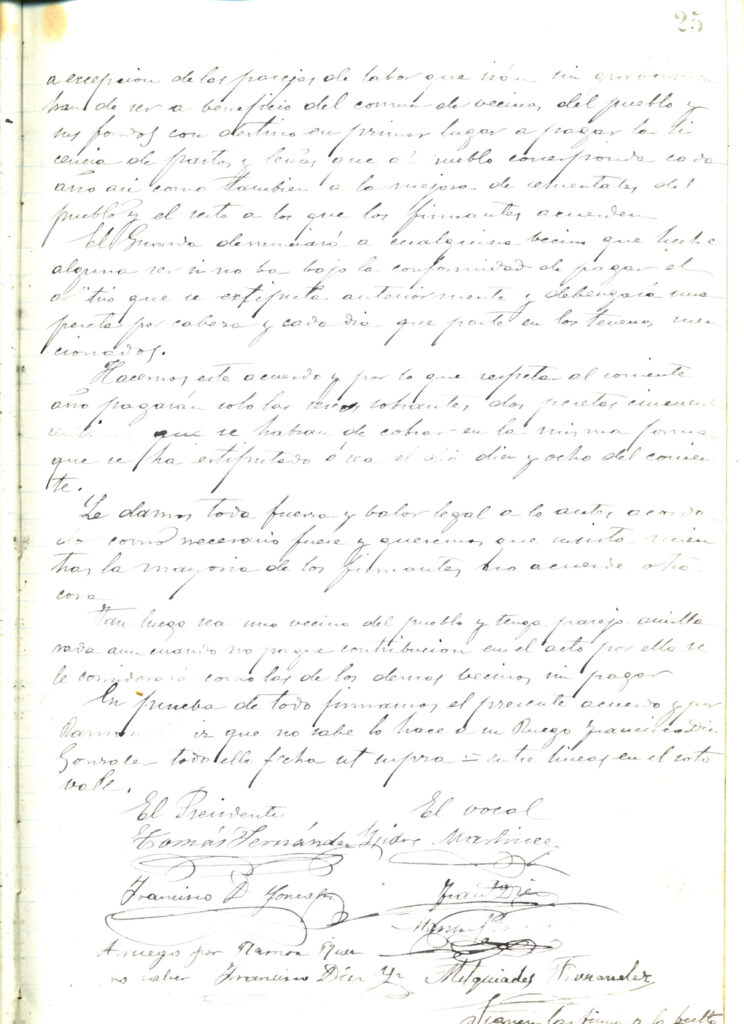 25
a excepcion de las parejas de labor que irán sin gravamen
han de ser a beneficio del comun de vecinos del pueblo y
sus fondos con destino en primer lugar a pagar la li
cencia de pastos y leñas que al pueblo corresponda cada
año asi como tambien a la mejora de sementales del
pueblo y el resto a los que los firmantes acuerden
El Guarda denunciará a cualquiera becino que heche
alguna res si no ba bajo la conformidad de pagar el
que se estipula anteriormente y debengará una
peseta por cabeza y cada dia que paste en los terrenos men
cionados.
Hacemos este acuerdo y por lo que respeta al coriente
año pagarán solo las reses sobrantes dos pesetas cincuent
que se habran de cobrar en la misma forma
que se ha estipulado ó sea el dia diez y ocho del corrien
te.
Le damos toda fuerza y balor legal a lo antes acorda
do como necesario fuere y queremos que insista mien
tras la mayoria de los firmantes no acuerde otra
cosa
Tan luego sea uno vecino del pueblo y tenga pareja amilla
rada aun cuando no pague contribucion en el acto por ella se
le considerará como las de los demas becinos sin pagar
En prueba de todo firmamos el presente acuerdo y por
Ramon que no sabe lo hace a su Ruego Francisco Diez
Gonzale todo ello fecha ut supra = entre lineas en el soto
vale.
El Presidente El vocal
Tomás Fernández Isidro Martinez
Francisco D Gonzalez Juan Diez
A ruego por Ramon
no saber Francisco Diez Melquiades Fernandez
Siguen las firmas a la buelta